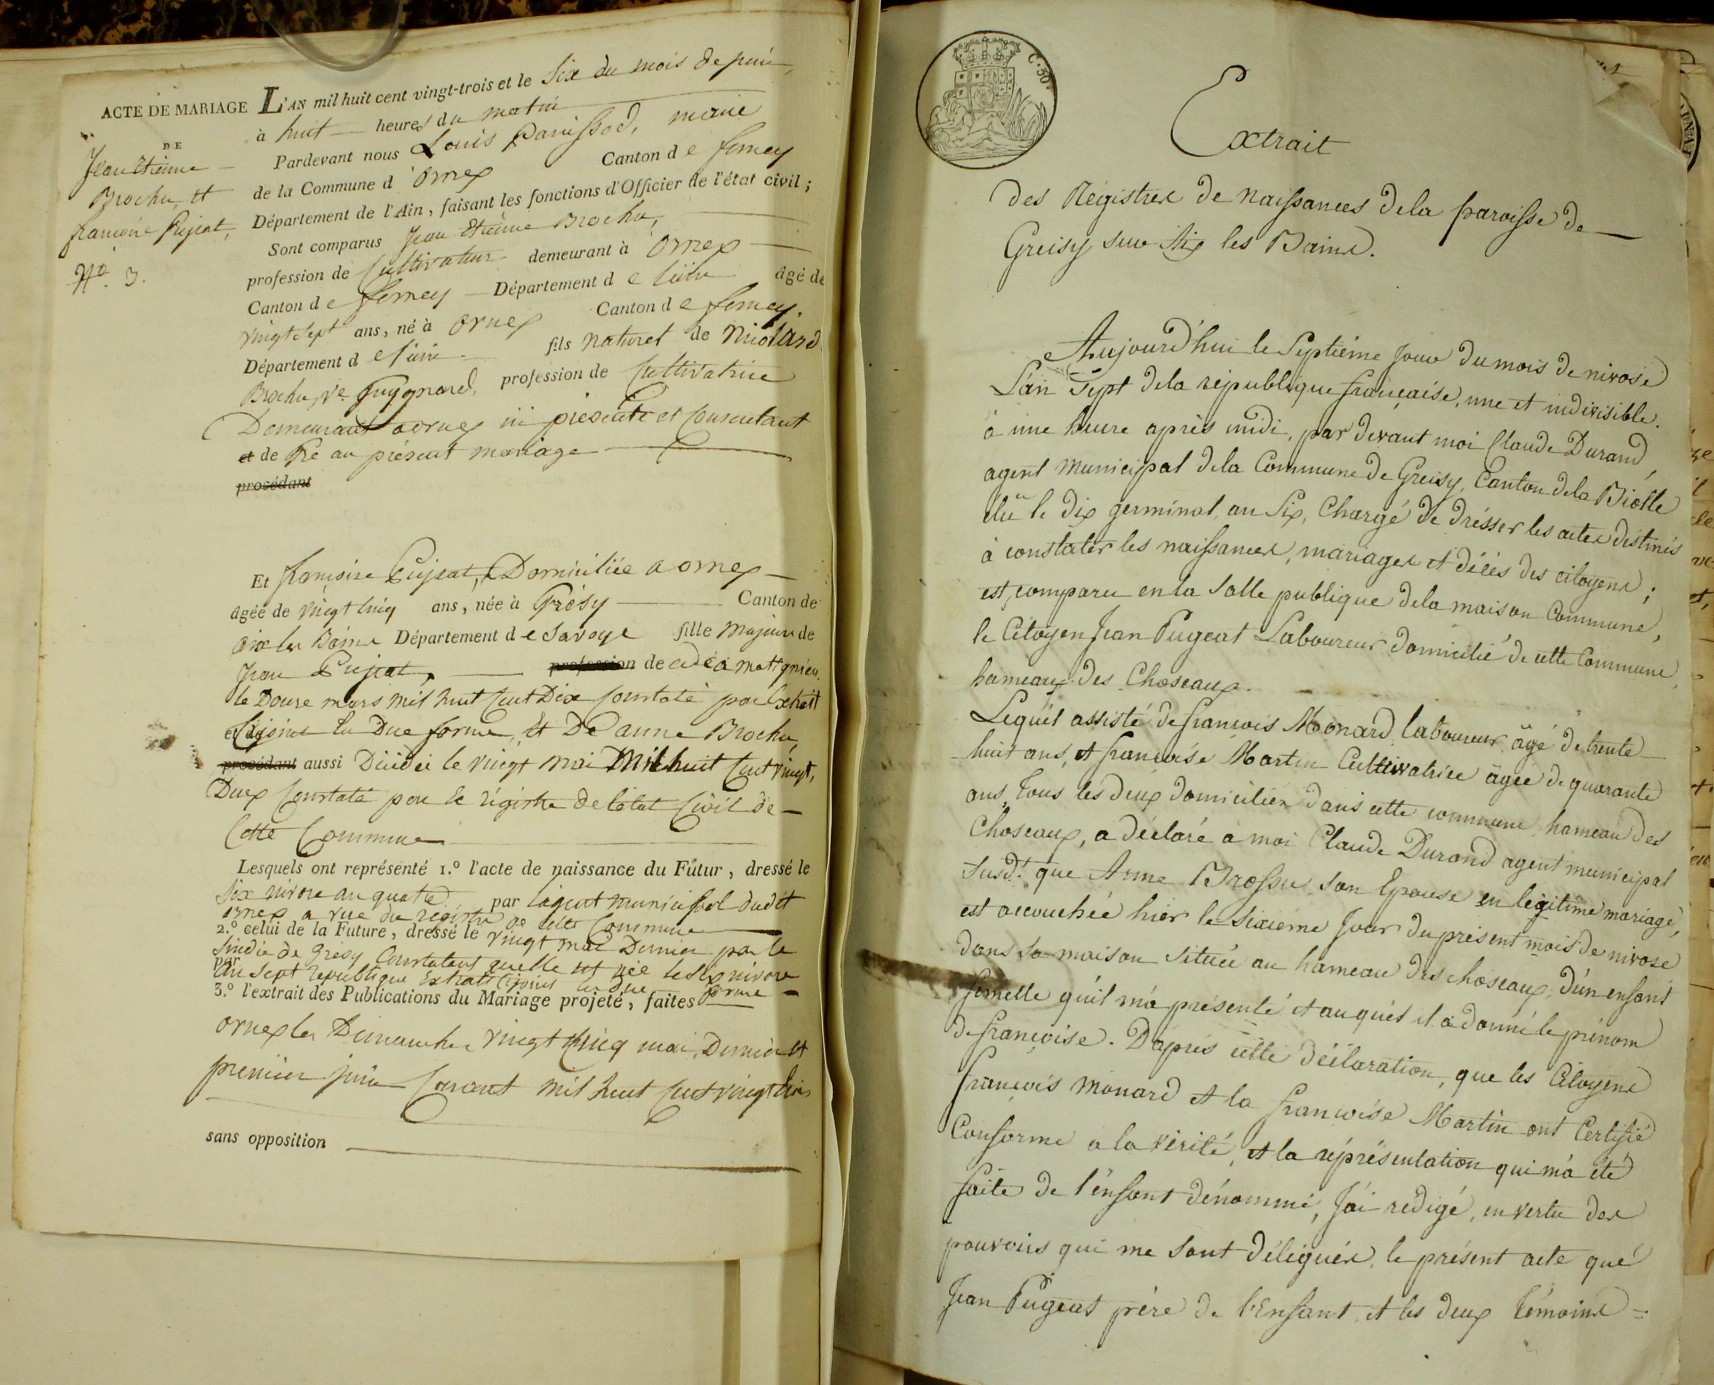 ACTE DE MARIAGE
DE
Jean Etienne
Brochu, et
francoise Pujeat,
N.o 3.
L'AN mil huit cent vingt-trois et le Six du mois de juin,
à huit heures du matin
Pardevant nous Louis Panissod, maire
de la Commune d'ornex Canton de ferney
Département de l'Ain, faisant les fonctions d'Officier de l'état civil;
Sont comparus Jean Etienne Brochu,
profession de Cultivateur demeurant à Ornex
Canton de ferney Département de l'ain âgé de
vingt sept ans, né à Ornex Canton de ferney.
Département de l'ain. fils naturel de
Brochu, Ve profession de Cultivatrice
Demeurant a ornex ici présente et Consentant
et de Pre au présent mariage
procédant
Et francoise Pujeat, Domiciliée a ornex
agée de vingt cinq ans, née à Grésy Canton de
aix les Bains Département de Savoye fille majeure de
Jean Pujeat, profession de
le Douze mars mil huit Cent Dix Constaté par Extrait
Cijoint En Due forme, et De anne Brochu
procédant aussi Décédée le vingt mai Mil huit Cent vingt
Deux Constaté par le régistre de l'état Civil de
Cette Commune
Lesquels ont représenté 1.º l'acte de naissance du Fûtur, dressé le
Six nivose an quatre par l'agent municipal dudit
ornex a vue du registre de cette Commune
2.º celui de la Future, dressé le vingt mai Dernier par le
par Sindic de Grésy Constatant quelle est née le six nivose
an sept republique Extrait Cijoint en due forme
3.º l'extrait des Publications du Mariage projeté, faites
ornex les Dimanches vingt Cinq mai Dernier et
premier juin Courant mil huit Cent vingt trois
sans opposition
C. 30
Extrait
des Régistres de naissances de la paroisse de
Greisy sur Aix les Bains.
Aujourd'hui le Septiéme jour du mois de nivose
L'an Sept de la république française, une et indivisible.
à une heure après midi, par devant moi Claude Durand,
agent municipal de la Commune de Greisy, Canton de la Biolle
élu le dix germinal, an Six, Chargé de drésser les actes déstinés
à constater les naissances, mariages et décès des citoyens;
est comparu en la Salle publique de la maison Commune,
le Citoyen Jean Pugeat Laboureur domicilié de cette Commune,
hameau des Choseaux.
Lequel assisté de françois Monard, laboureur, âgé de trente
huit ans, et françoise Martin Cultivatrice âgée de quarante
ans, tous les deux domiciliés dans cette commune hameau des
Choseaux, a déclaré à moi Claude Durand agent municipal
susd.t que Anne Brossu son Epouse en légitime mariage,
est accouchée hier le Sixieme jour du présent mois de nivose
dans sa maison située au hameau des choseaux, d'un enfant
femelle qu'il m'a présenté et auquel il a donné le prénom
de françoise. D'aprés cette déclaration, que les Citoyens
françois Monard et la françoise Martin ont Certifié
Conforme a la vérité, et la réprésentation qui m'a été
faite de l'enfant dénommé, j'ai redigé, en vertu des
pouvoirs qui me sont délégués, le présent acte que
Jean Pugeat pére de l'Enfant et les deux témoins